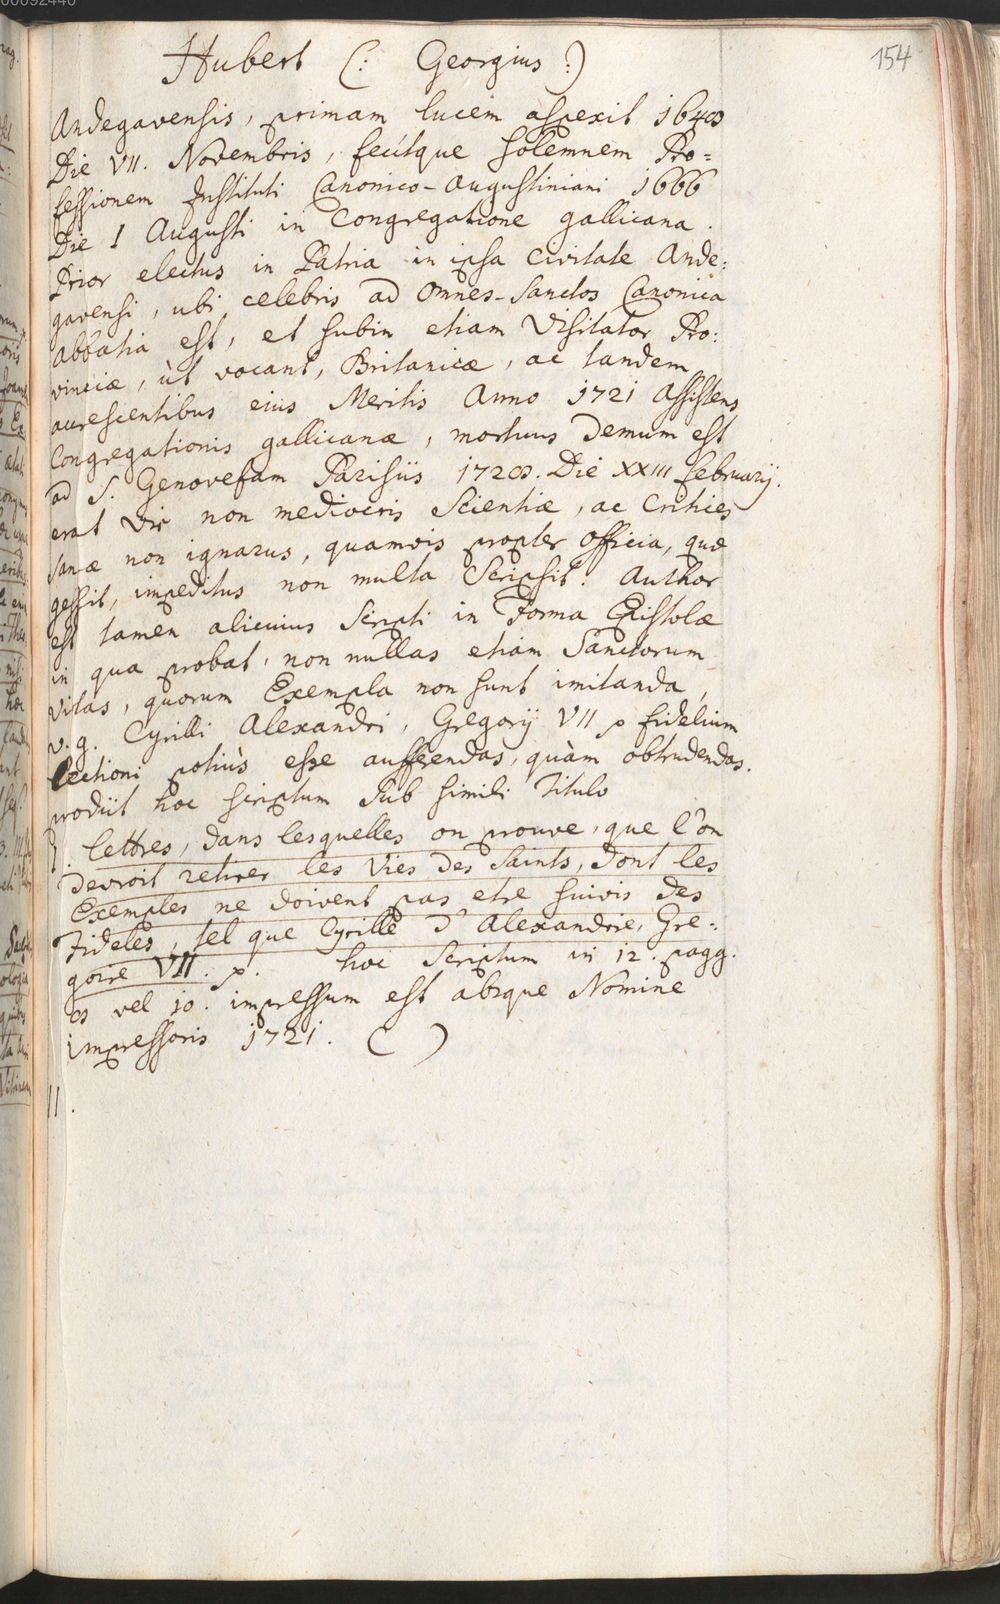 154
Hubert (: Georgius :)
Andegavensis, primam lucem aspexit 1648
Die VII. Novembris, fecitque solemnem Pro=
fessionem Instituti Canonico-Augustiniani 1666
Die 1 Augusti in Congregatione gallicana.
Prior electus in Patria in ipsa civitate Ande=
gavensi, ubi celebris ad Omnes-Sanctos Canonica
Abbatia est, et subin etiam Visitator Pro:
vinciæ, ùt vocant, Britanicæ, ac tandem
accrescentibus eius Meritis Anno 1721 Assistens
Congregationis gallicanæ, mortuus Demum est
ad S. Genovefam Parisiis 1728. Die XXIII februarij.
erat Vir non mediocris Scientiæ, ac Crithices
sanæ non ignarus, quamvis propter officia, quæ
gessit, impeditus non multa Scripsit. Author
est tamen alicuius Scripti in Forma Epistolæ
in qua probat, non nullas etiam Sanctorum
vitas, quorum Exempla non sunt imitanda,
v. g. Cyrilli Alexandri, Gregorij VII p fidelium
lectioni potiùs esse aufferendas, quàm obtrudendas.
prodiit hoc scriptum sub simili Titulo
lettres, dans lesquelles on prouve, que l'on
devroit retirer les Vies des Saints, dont les
Exemples ne doivent pas etre suivis des
Fideles, tel que Cyrille d' Alexandrie, Gre=
goire VII. p. hoc Scriptum in 12. pagg.
8 vel 10. impressum est absque Nomine
impressoris 1721. ( )
11.